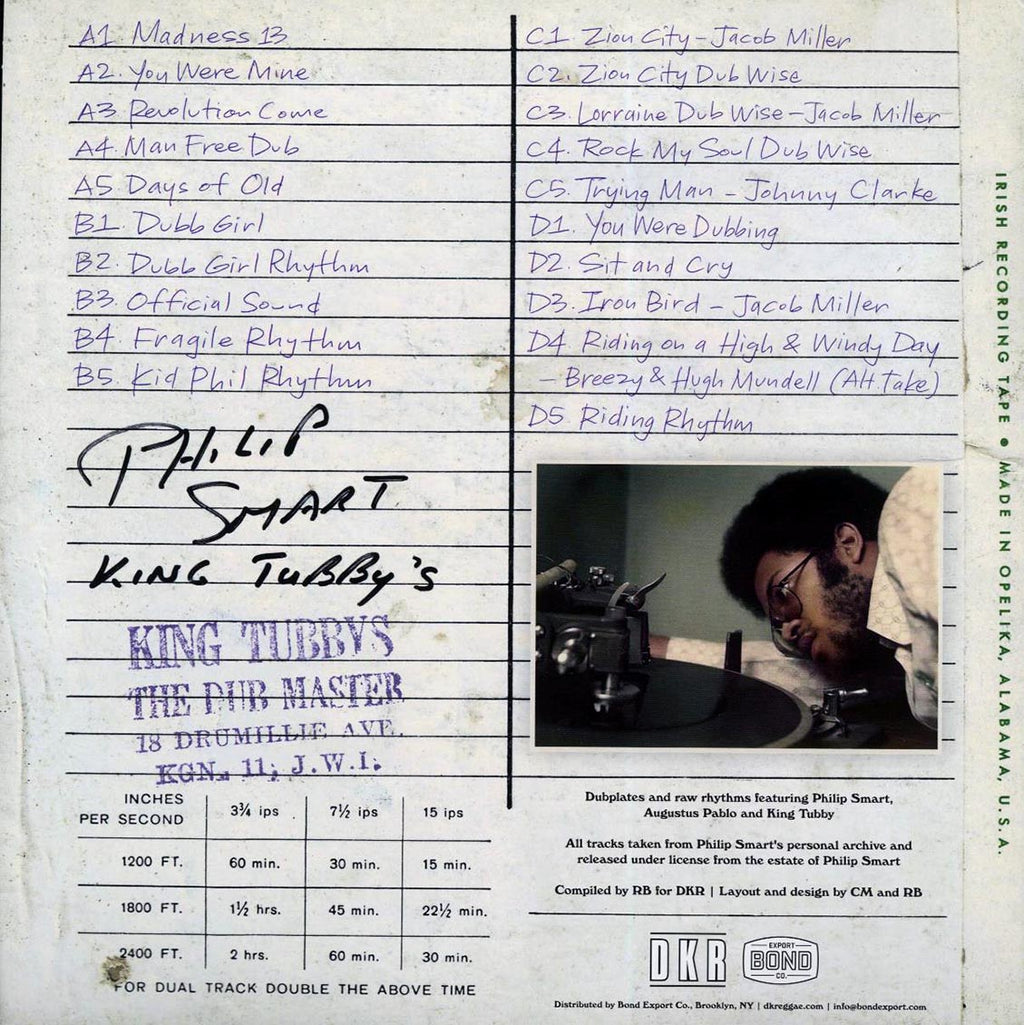 A1 Madness 13
A2. You Were Mine
A3 Revolution Come
A4. Man Free Dub
A5 Days of Old
B1. Dubb Girl
B2. Dubb Girl Rhythm
B3. Official Sound
B4. Fragile Rhythm
B5 Kid Phil Rhythm
C1. Zion City - Jacob Miller
C2. Zion City Dub Wise
C3. Lorraine Dub Wise - Jacob Miller
C4. Rock My Soul Dub Wise
C5. Trying Man - Johnny Clarke
D1. You Were Dubbing
D2. Sit and Cry
D3. Iron Bird - Jacob Miller
D4 Riding on a High & Windy Day
- Breezy & Hugh Mundell (Alt. Take)
D5 Riding Rhythm
PHILIP
SMART
KING TUBBY'S
KING TUBBYS
THE DUB MASTER
18 DRUMILLIE AVE.
KGN. 11; J.W.I.
INCHES PER SECOND 3¾ ips 7½ ips 15 ips
1200 FT. 60 min. 30 min. 15 min.
1800 FT. 1½ hrs. 45 min. 22½ min.
2400 FT. 2 hrs. 60 min. 30 min.
FOR DUAL TRACK DOUBLE THE ABOVE TIME
Dubplates and raw rhythms featuring Philip Smart,
Augustus Pablo and King Tubby
All tracks taken from Philip Smart's personal archive and
released under license from the estate of Philip Smart
Compiled by RB for DKR | Layout and design by CM and RB
DKR
EXPORT
BOND
CO.
Distributed by Bond Export Co., Brooklyn, NY | dkreggae.com | info@bondexport.com
IRISH RECORDING TAPE • MADE IN OPELIKA, ALABAMA, U.S.A.